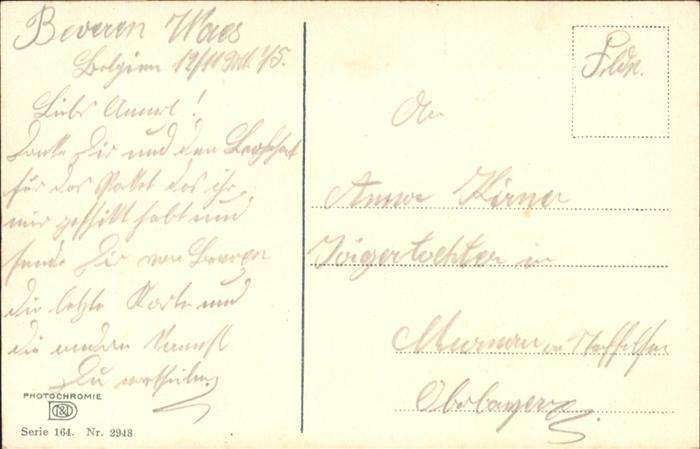 Beveren Waes
Belgien 12/11 15.
Liebe Annerl!
Danke Dir und den
für das Paket das ihr
mir geschikt habt und
sende Dir von Beveren
die letzte Karte und
die andern
Du
PHOTOCHROMIE
Serie 164. Nr. 2948
Feldp.
An
Anna Kirner
Jägertochter in
Murnau
Oberbayern